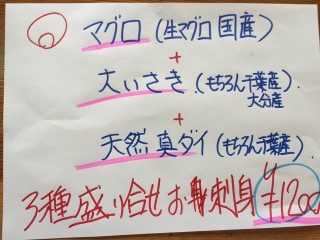 マグロ(生マグロ 国産)
+
大いさき(もちろん千葉産)
大分産
+
天然 真ダイ(もちろん千葉産)
3種盛り合せ お刺身 ¥1200